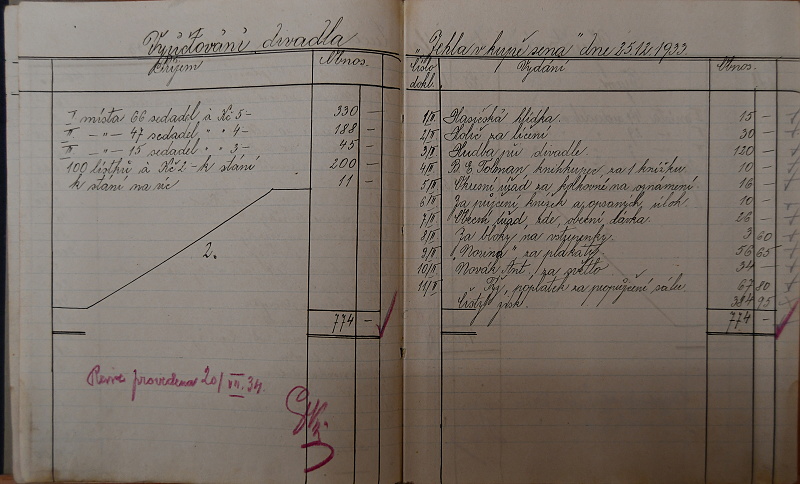 Vyúčtování divadla
Příjem
Obnos.
I místa 66 sedadel á Kč 5- 330 -
II -„- 47 sedadel „ „ 4- 188 -
III -„- 15 sedadel „ „ 3- 45 -
100 lístků á Kč 2- k stání 200 -
k stání na víc 11 -
2.
774 -
Revise provedena 20/VII. 34.
„Jehla v kupě sena" dne 25.12.1933
Číslo dokl.
Vydání
Obnos.
1/II Hasičská hlídka. 15 -
2/II Holič za líčení 30 -
3/II Hudba při divadle. 120 -
4/II B. E. Tolman knihkupec, za 1 knížku. 10 -
5/II Okresní úřad za kolkovné na oznámení. 16 -
6/II Za půjčení knížek a opsaných úloh. 10 -
7/II Obecní úřad, zde, obecní dávka. 26 -
8/II Za bloky na vstupenky. 3 60
9/II „Nosina" za plakáty 56 65
10/II Novák Ant., za světlo 34 -
11/II poplatek za propůjčení sálu 67 80
Čistý zisk. 384 95
774 -